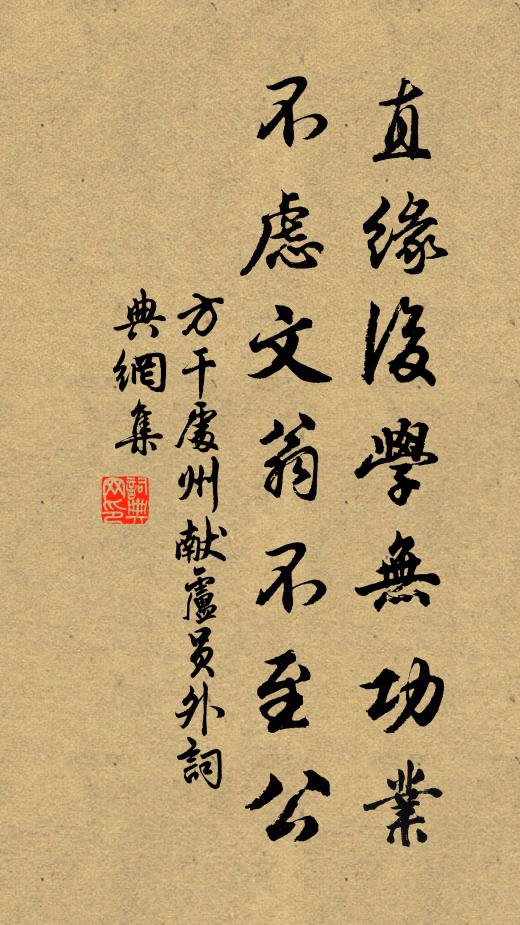 直緣後學無功業
不慮文翁不至公
方干處州献盧員外詞
典網集
詞典网印